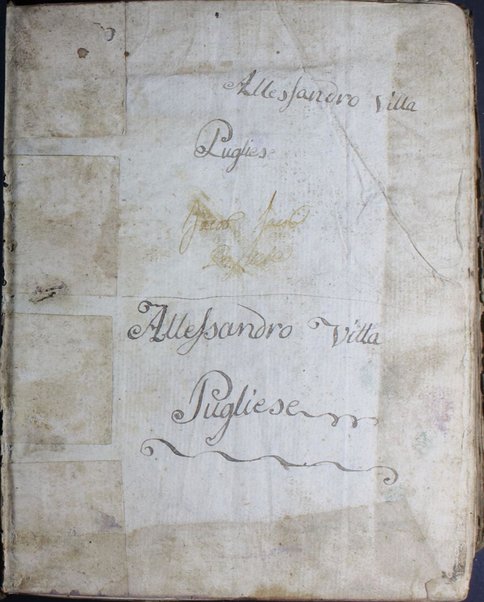 Allessandro Villa
Pugliese
Jacob Jacob
Allessandro Villa
Pugliese